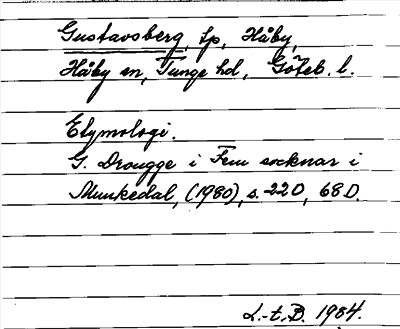 Gustavsberg, lp, Håby,
Håby sn, Tunge hd, Göteb. l.
Etymologi.
G. Drougge i Fem socknar i
Munkedal, (1980), s. 220, 680.
L.-t. B. 1984.